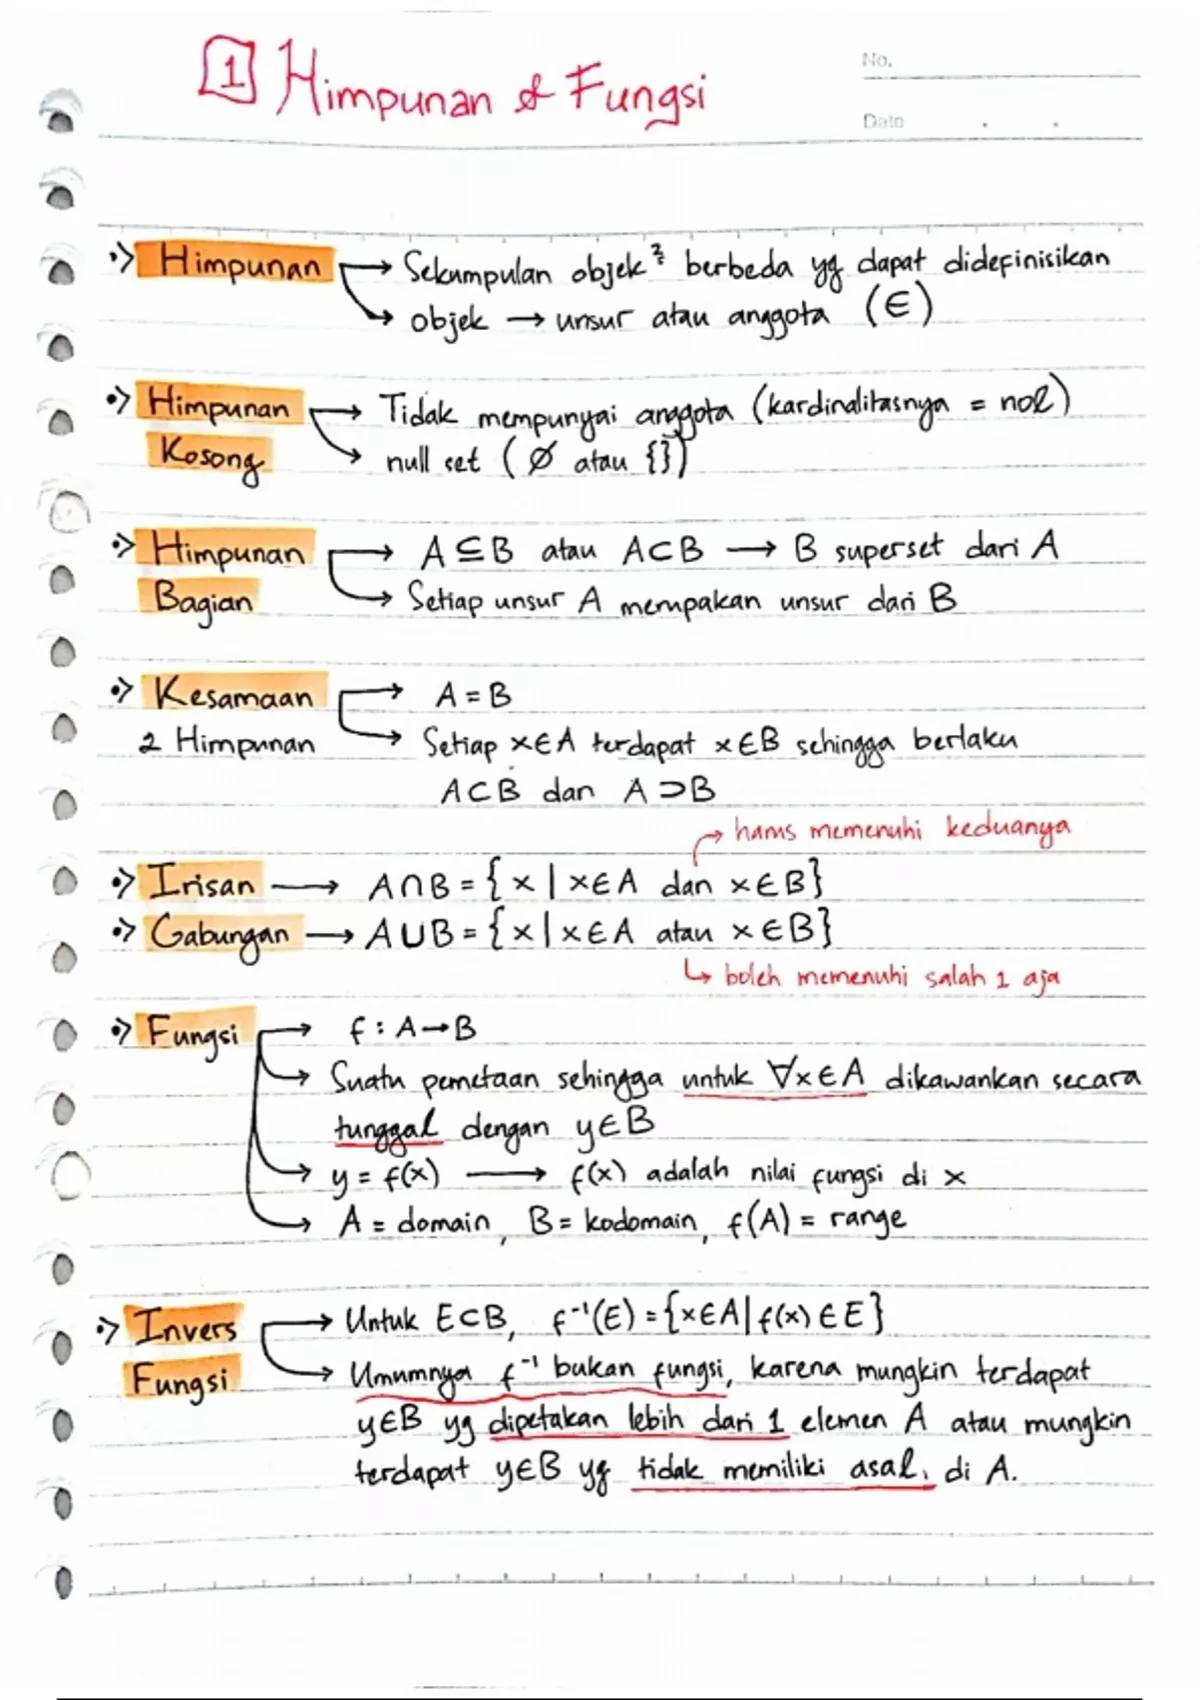 1 Himpunan & Fungsi
No.
Date . .
•> Himpunan → Sekumpulan objek² berbeda yg dapat didefinisikan
→ objek → unsur atau anggota (∈)
•> Himpunan → Tidak mempunyai anggota (kardinalitasnya = nol)
Kosong → null set (∅ atau {})
•> Himpunan → A ⊆ B atau A ⊂ B → B superset dari A
Bagian → Setiap unsur A merupakan unsur dari B
•> Kesamaan → A = B
2 Himpunan → Setiap x∈A terdapat x∈B sehingga berlaku
A⊂B dan A⊃B
→ harus memenuhi keduanya
•> Irisan → A∩B = {x | x∈A dan x∈B}
•> Gabungan → A∪B = {x | x∈A atau x∈B}
↳ boleh memenuhi salah 1 aja
•> Fungsi → f : A→B
→ Suatu pemetaan sehingga untuk ∀x∈A dikawankan secara
tunggal dengan y∈B
→ y = f(x) → f(x) adalah nilai fungsi di x
→ A = domain, B = kodomain, f(A) = range
•> Invers → Untuk E⊂B, f⁻¹(E) = {x∈A | f(x) ∈ E}
Fungsi → Umumnya f⁻¹ bukan fungsi, karena mungkin terdapat
y∈B yg dipetakan lebih dari 1 elemen A atau mungkin
terdapat y∈B yg tidak memiliki asal, di A.